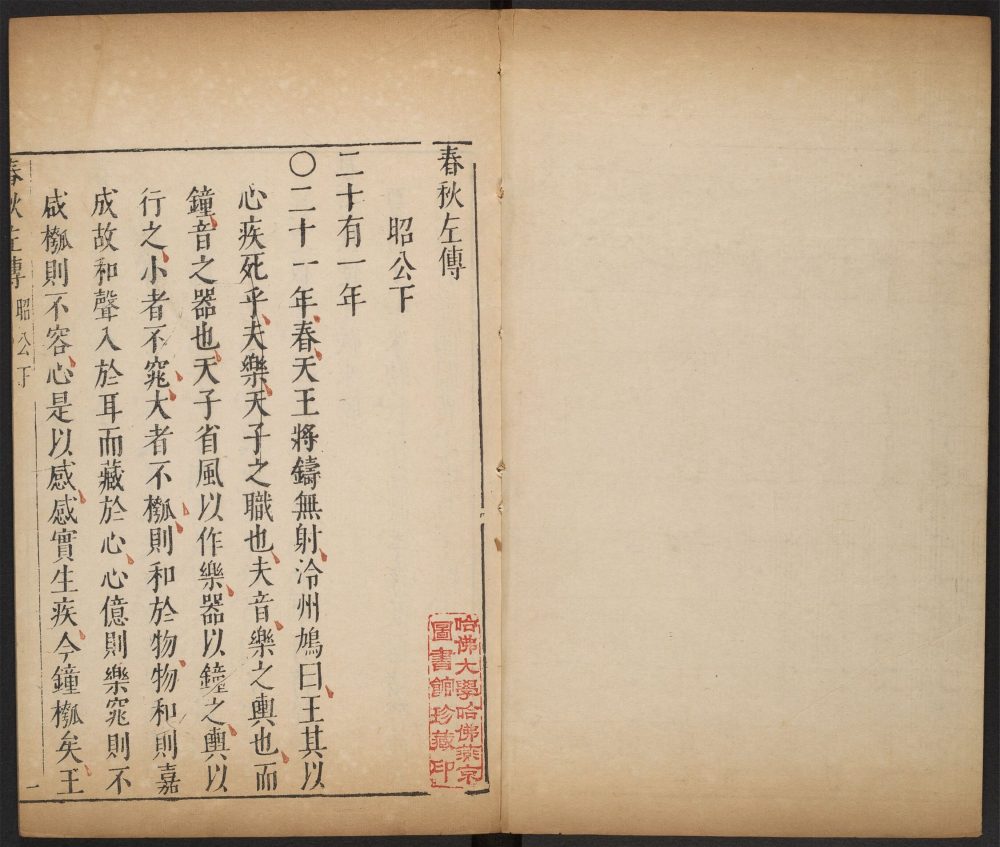 春秋左傳
昭公下
二十有一年
〇二十一年春天王將鑄無射泠州鳩曰王其以
心疾死乎夫樂天子之職也夫音樂之輿也而
鐘音之器也天子省風以作樂器以鐘之輿以
行之小者不窕大者不槬則和於物物和則嘉
成故和聲入於耳而藏於心心億則樂窕則不
咸槬則不容心是以感感實生疾今鐘槬矣王
春秋左傳 昭公下 一
哈佛大學哈佛燕京
圖書館珍藏印